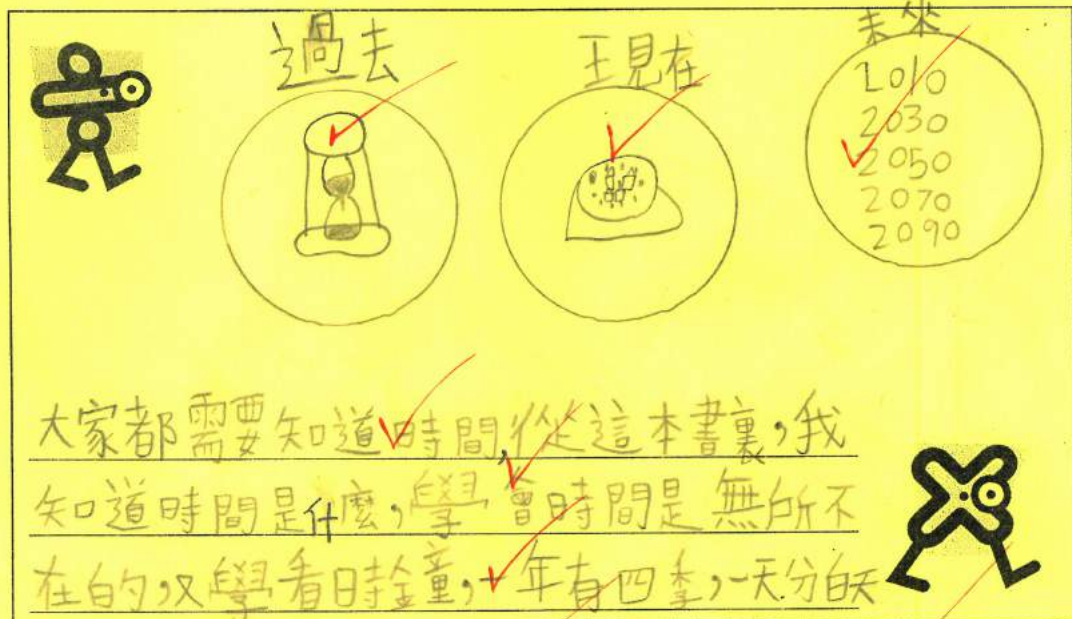 過去
現在
未來
2010
2030
2050
2070
2090
大家都需要知道時間,從這本書裏,我
知道時間是什麼,學會時間是無所不
在的,又學看時鐘,一年有四季,一天分白天